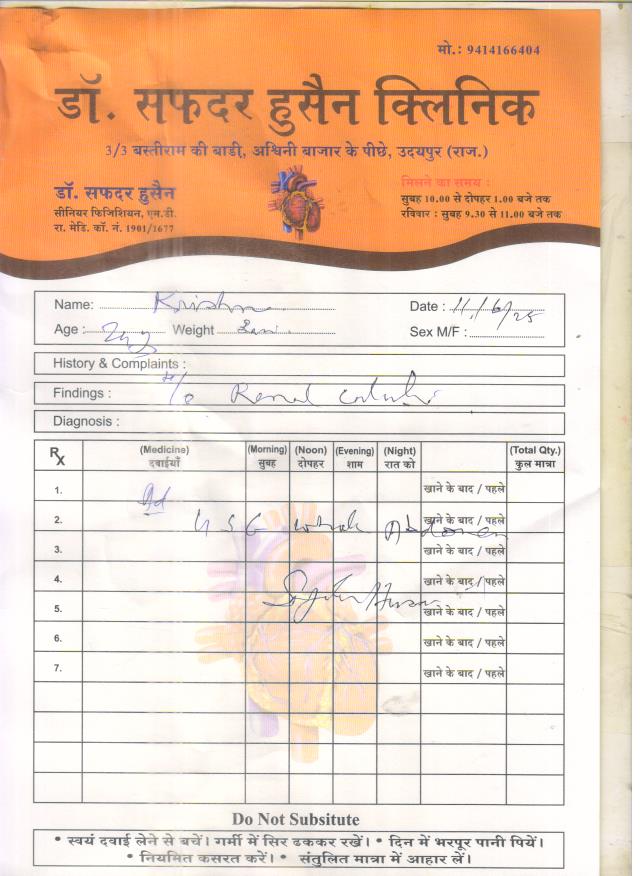 मो.: 9414166404
डॉ. सफदर हुसैन क्लिनिक
3/3 बस्तीराम की बाडी, अश्विनी बाजार के पीछे, उदयपुर (राज.)
डॉ. सफदर हुसैन
सीनियर फिजिशियन, एम.डी.
रा. मेडि. कॉ. नं. 1901/1677
मिलने का समय :
सुबह 10.00 से दोपहर 1.00 बजे तक
रविवार : सुबह 9.30 से 11.00 बजे तक
Name: Krishna Date : 11/6/25
Age : Weight Sex M/F :
History & Complaints :
Findings : H/o Renal calculi
Diagnosis :
Rx (Medicine) (Morning) (Noon) (Evening) (Night) (Total Qty.)
दवाईयाँ सुबह दोपहर शाम रात को कुल मात्रा
1. Ad खाने के बाद / पहले
2. USG whole Abdomen खाने के बाद / पहले
3. खाने के बाद / पहले
4. खाने के बाद / पहले
5. खाने के बाद / पहले
6. खाने के बाद / पहले
7. खाने के बाद / पहले
Do Not Subsitute
• स्वयं दवाई लेने से बचें। गर्मी में सिर ढककर रखें। • दिन में भरपूर पानी पियें।
• नियमित कसरत करें। • संतुलित मात्रा में आहार लें।